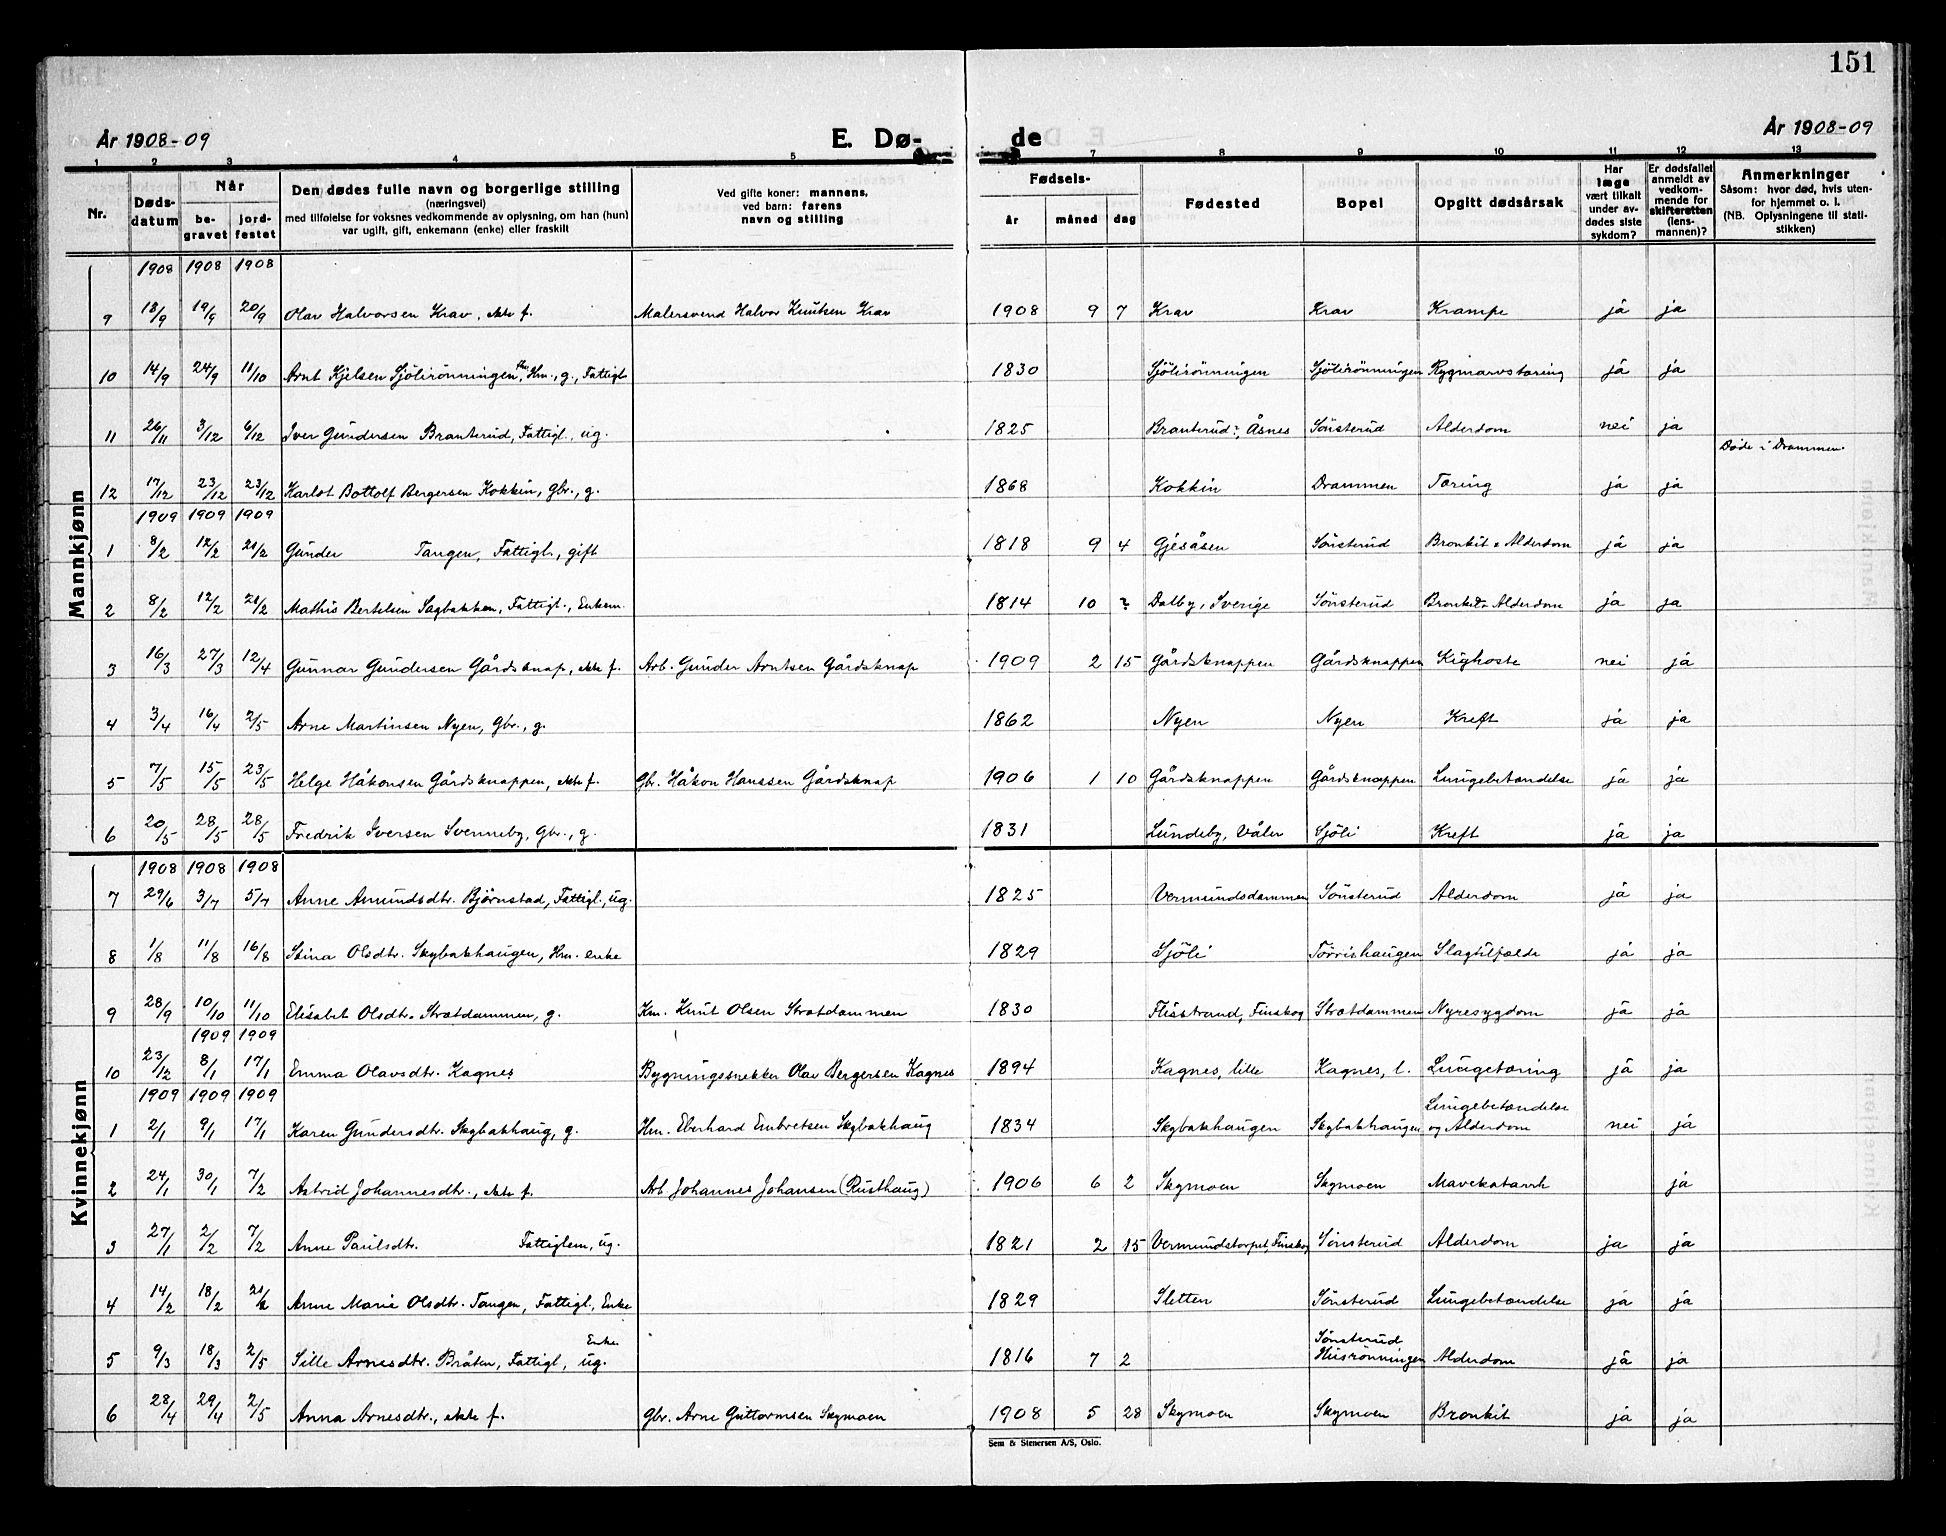 151
År 1908-09 E. Dø- de År 1908-09
1 2 3 4 5 7 8 9 10 11 12 13
Nr. Døds-datum Når be-gravet jord-festet Den dødes fulle navn og borgerlige stilling (næringsvei) med tilføielse for voksnes vedkommende av oplysning, om han (hun) var ugift, gift, enkemann (enke) eller fraskilt Ved gifte koner: mannens, ved barn: farens navn og stilling Fødsels- år måned dag Fødested Bopel Opgitt dødsårsak Har læge vært tilkalt under av-dødes siste sykdom? Er dødsfallet anmeldt av vedkom-mende for skifteretten (lens-mannen)? Anmerkninger Såsom: hvor død, hvis uten-for hjemmet o. l. (NB. Oplysningene til stati-stikken)
Mannkjønn
1908 1908 1908
9 13/9 19/9 20/9 Olav Halvorsen Krav, ekte f. Malersvend Halvor Knutsen Krav 1908 9 7 Krav Krav Krampe ja ja
10 14/9 24/9 11/10 Arnt Kjelsen Sjölirönningen, Hm., g., Fattigl. 1830 Sjölirönningen Sjölirönningen Rygmarvstæring ja ja
11 26/11 3/12 6/12 Iver Gundersen Branterud, Fattigl., ug. 1825 Branterud?, Åsnes Sönsterud Alderdom nei ja
Døde i Drammen.
12 17/12 23/12 23/12 Karlot Bottolf Bergersen Kokkin, Gbr., g. 1868 Kokkin Drammen Tæring ja ja
1909 1909 1909
1 8/2 12/2 21/2 Gunder Tangen, Fattigl., gift 1818 9 4 Gjesåsen Sönsterud Bronkit & Alderdom ja ja
2 8/2 12/2 21/2 Mathis Bertelsen Sagbakken, Fattigl., Enkem. 1814 10 ? Dalby, Sverige Sönsterud Bronkit & Alderdom ja ja
3 16/3 27/3 12/4 Gunnar Gundersen Gårdsknap, ekte f. Arb. Gunder Arntsen Gårdsknap 1909 2 15 Gårdsknappen Gårdsknappen Kighoste nei ja
4 3/4 16/4 2/5 Arne Martinsen Nyen, Gbr., g. 1862 Nyen Nyen Kreft ja ja
5 7/5 15/5 23/5 Helge Håkonsen Gårdsknappen, ekte f. Gbr. Håkon Hanssen Gårdsknap 1906 1 10 Gårdsknappen Gårdsknappen Lungebetændelse ja ja
6 20/5 28/5 28/5 Fredrik Iversen Svenneby, Gbr., g. 1831 Lundeby, Våler Sjöli Kreft ja ja
Kvinnekjønn
1908 1908 1908
7 29/6 3/7 5/7 Anne Amundsdtr. Björnstad, Fattigl., ug. 1825 Vermundsdammen Sönsterud Alderdom ja ja
8 1/8 11/8 16/8 Stina Olsdtr. Skybakhaugen, Hm. enke 1829 Sjöli Törrishaugen Slagtilfælde ja ja
9 28/9 10/10 11/10 Elisabet Olsdtr. Strætdammen, g. Km. Knut Olsen Strætdammen 1830 Flisstrand, Finskog Strætdammen Nyresygdom ja ja
1909 1909
10 23/12 8/1 17/1 Emma Olavsdtr. Kagnes Bygningssnekker Olav Bergersen Kagnes 1894 Kagnes, lille Kagnes, l. Lungetæring ja ja
1909 1909 1909
1 2/1 9/1 17/1 Karen Gundersdtr. Skybakhaug, g. Hm. Eberhard Embretsen Skybakhaug 1834 Skybakhaugen Skybakhaugen Lungebetændelse og Alderdom nei ja
2 24/1 30/1 7/2 Astrid Johannesdtr., ekte f. Arb Johannes Johansen (Rusthaug) 1906 6 2 Skymoen Skymoen Mavekatarrh ja
3 27/1 2/2 7/2 Anne Paulsdtr. Fattiglem, ug. 1821 2 15 Vermundstorpet, Finskog Sönsterud Alderdom ja ja
4 14/2 18/2 21/2 Anne Marie Olsdtr. Tangen, Fattigl., Enke 1829 Sletten Sönsterud Lungebetændelse ja ja
5 9/3 18/3 2/5 Sille Arnesdtr. Bråten, Fattigl., ug. Enke 1816 7 2 Sönsterud Husrönningen Alderdom ja ja
6 28/4 29/4 2/5 Anna Arnesdtr., ekte f. Gbr. Arne Guttormsen Skymoen 1908 5 28 Skymoen Skymoen Bronkit ja ja
Sem & Stenersen A/S, Oslo.